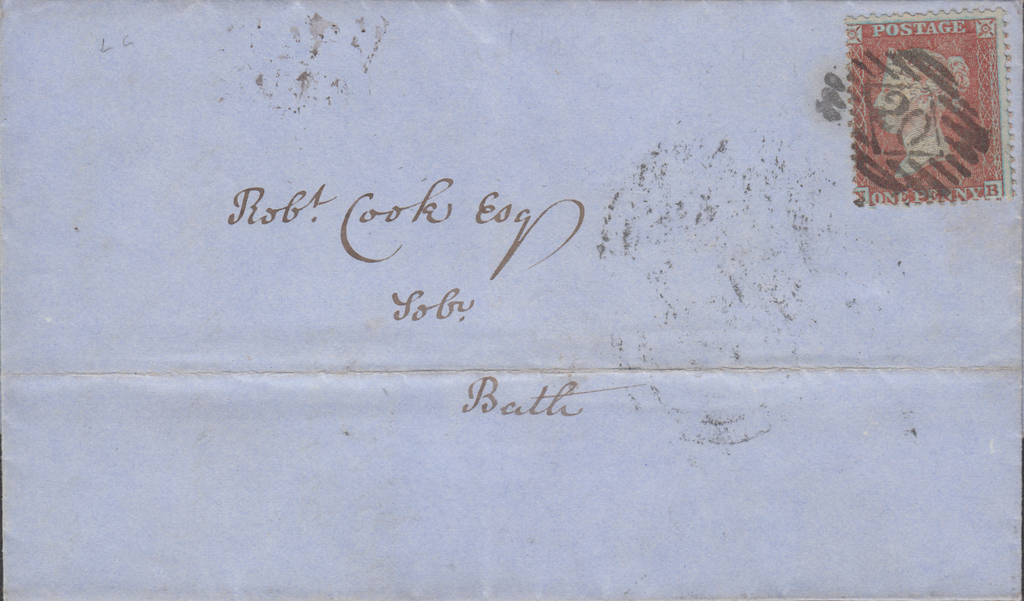 LC
POSTAGE
ONE PENNY B
Robt. Cook Esq
Sobr.
Bath